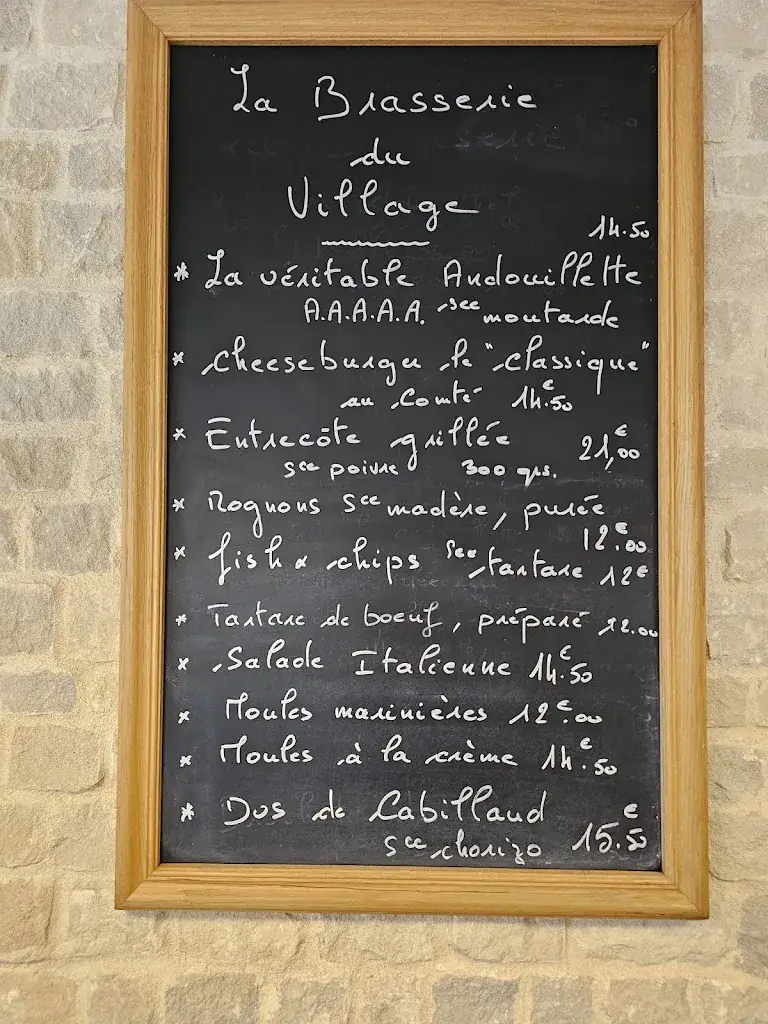 La Brasserie
du
Village
14.50
* La véritable Andouillette
A.A.A.A.A. sce moutarde
* cheeseburger le "classique"
au Comté 14.50€
* Entrecôte grillée 21,00€
sce poivre 300 grs.
* Rognons sce madère, purée
12.00€
* fish & chips sce tartare 12€
* Tartare de boeuf, préparé 12.00
* Salade Italienne 14.50€
* Moules marinières 12.00€
* Moules à la crème 14.50€
* Dos de Cabillaud
sce chorizo 15.50€